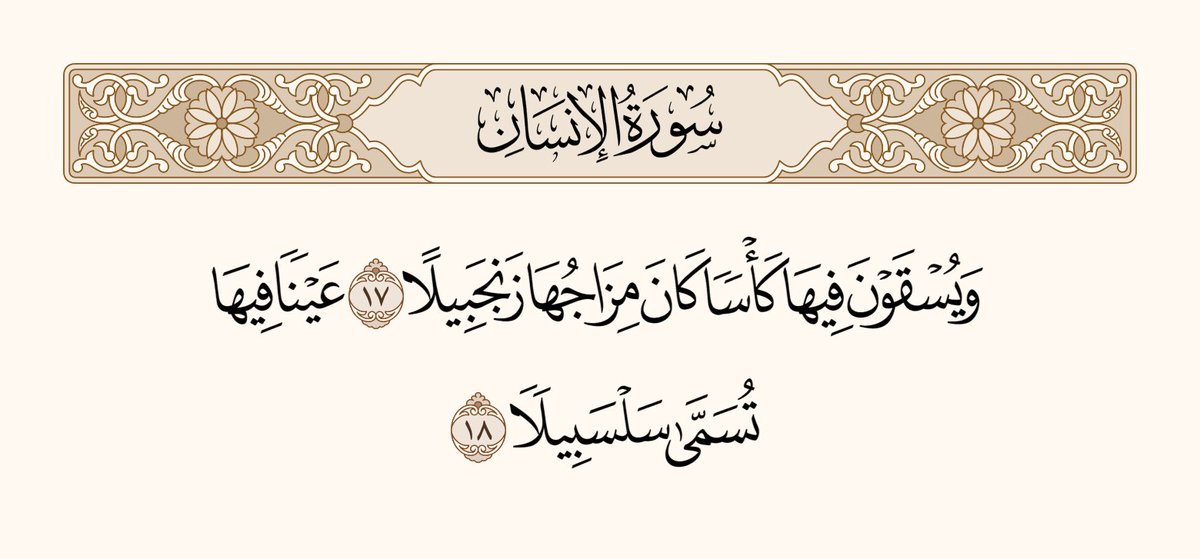 سُورَةُ الإِنسَانِ
وَيُسۡقَوۡنَ فِيهَا كَأۡسٗا كَانَ مِزَاجُهَا زَنجَبِيلًا ١٧ عَيۡنٗا فِيهَا
تُسَمَّىٰ سَلۡسَبِيلٗا ١٨